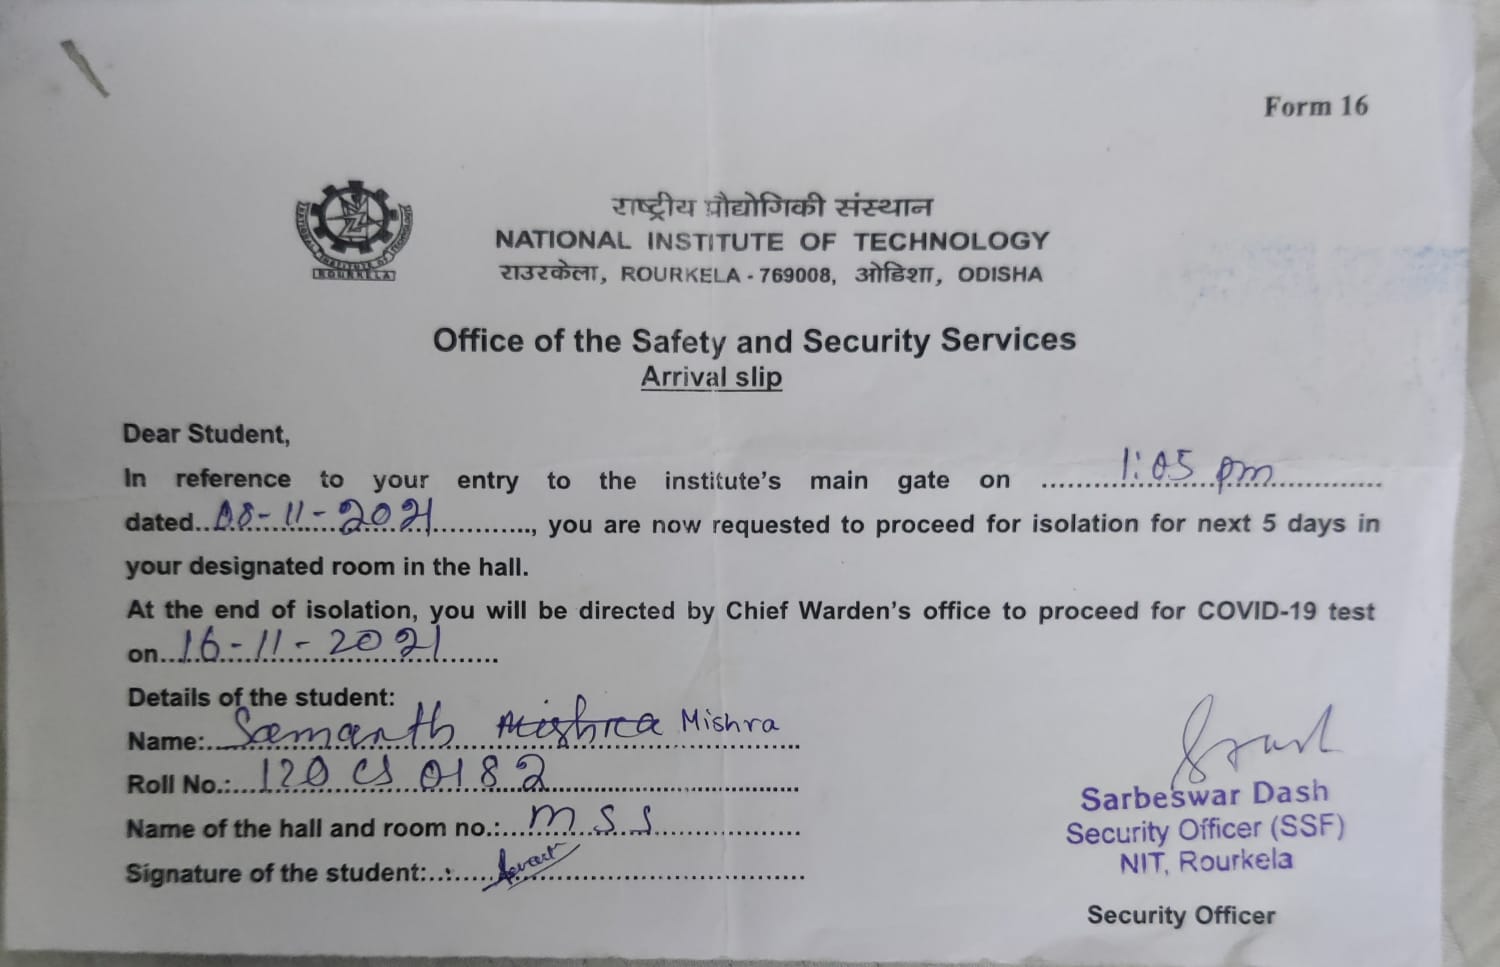 Form 16
राष्ट्रीय प्रौद्योगिकी संस्थान
NATIONAL INSTITUTE OF TECHNOLOGY
राउरकेला, ROURKELA - 769008, ओडिशा, ODISHA
NATIONAL INSTITUTE OF TECHNOLOGY
ROURKELA
Office of the Safety and Security Services
Arrival slip
Dear Student,
In reference to your entry to the institute's main gate on 1:05 pm
dated 08-11-2021, you are now requested to proceed for isolation for next 5 days in
your designated room in the hall.
At the end of isolation, you will be directed by Chief Warden's office to proceed for COVID-19 test
on 16-11-2021
Details of the student:
Name: Samanth Mishra Mishra
Roll No.: 120CS0182
Name of the hall and room no.: MSS
Signature of the student:
Sarbeswar Dash
Security Officer (SSF)
NIT, Rourkela
Security Officer